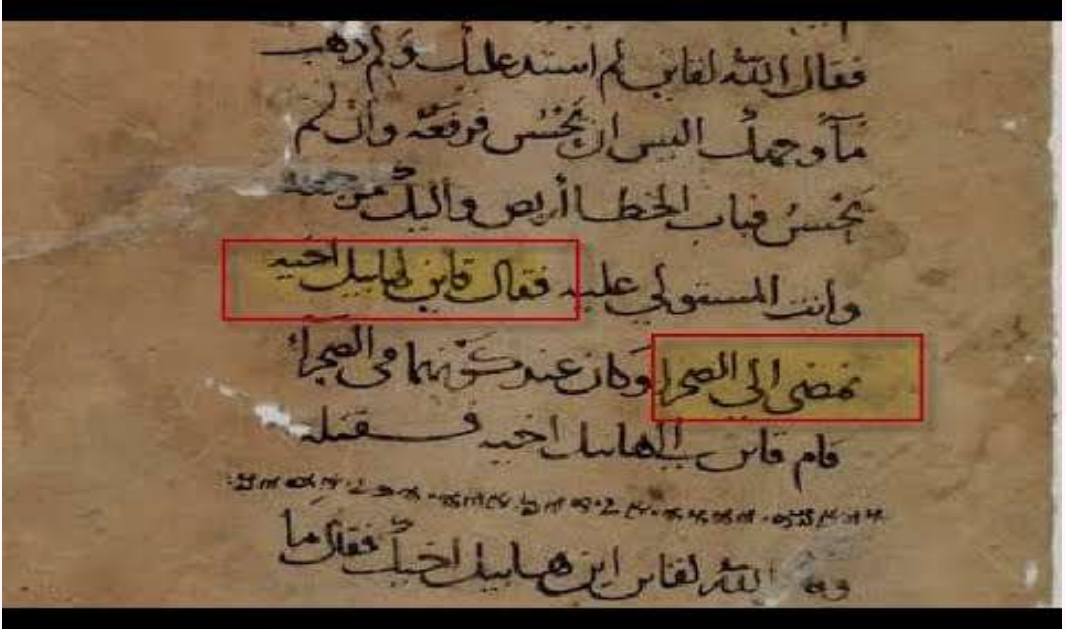 فقال الله لقاين لم اشتد عليك ولم ذهب
مآء وجهك اليس ان تحسن فرفعه وان لم
تحسن فباب الخطا أربص واليك مرجعه
وانت المستولي عليه فقال قاين لهابيل اخيه
نمضى الي الصحرا وكان عند كونهما في الصحرآء
قام قاين الي هابيل اخيه فقتله
الله لقاين اين هابيل اخيك فقال ما